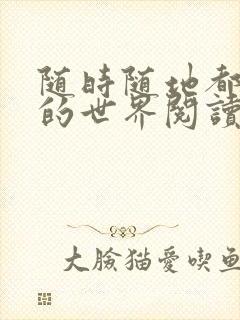 随時随地都
的世界閱讀
大臉猫愛喫鱼